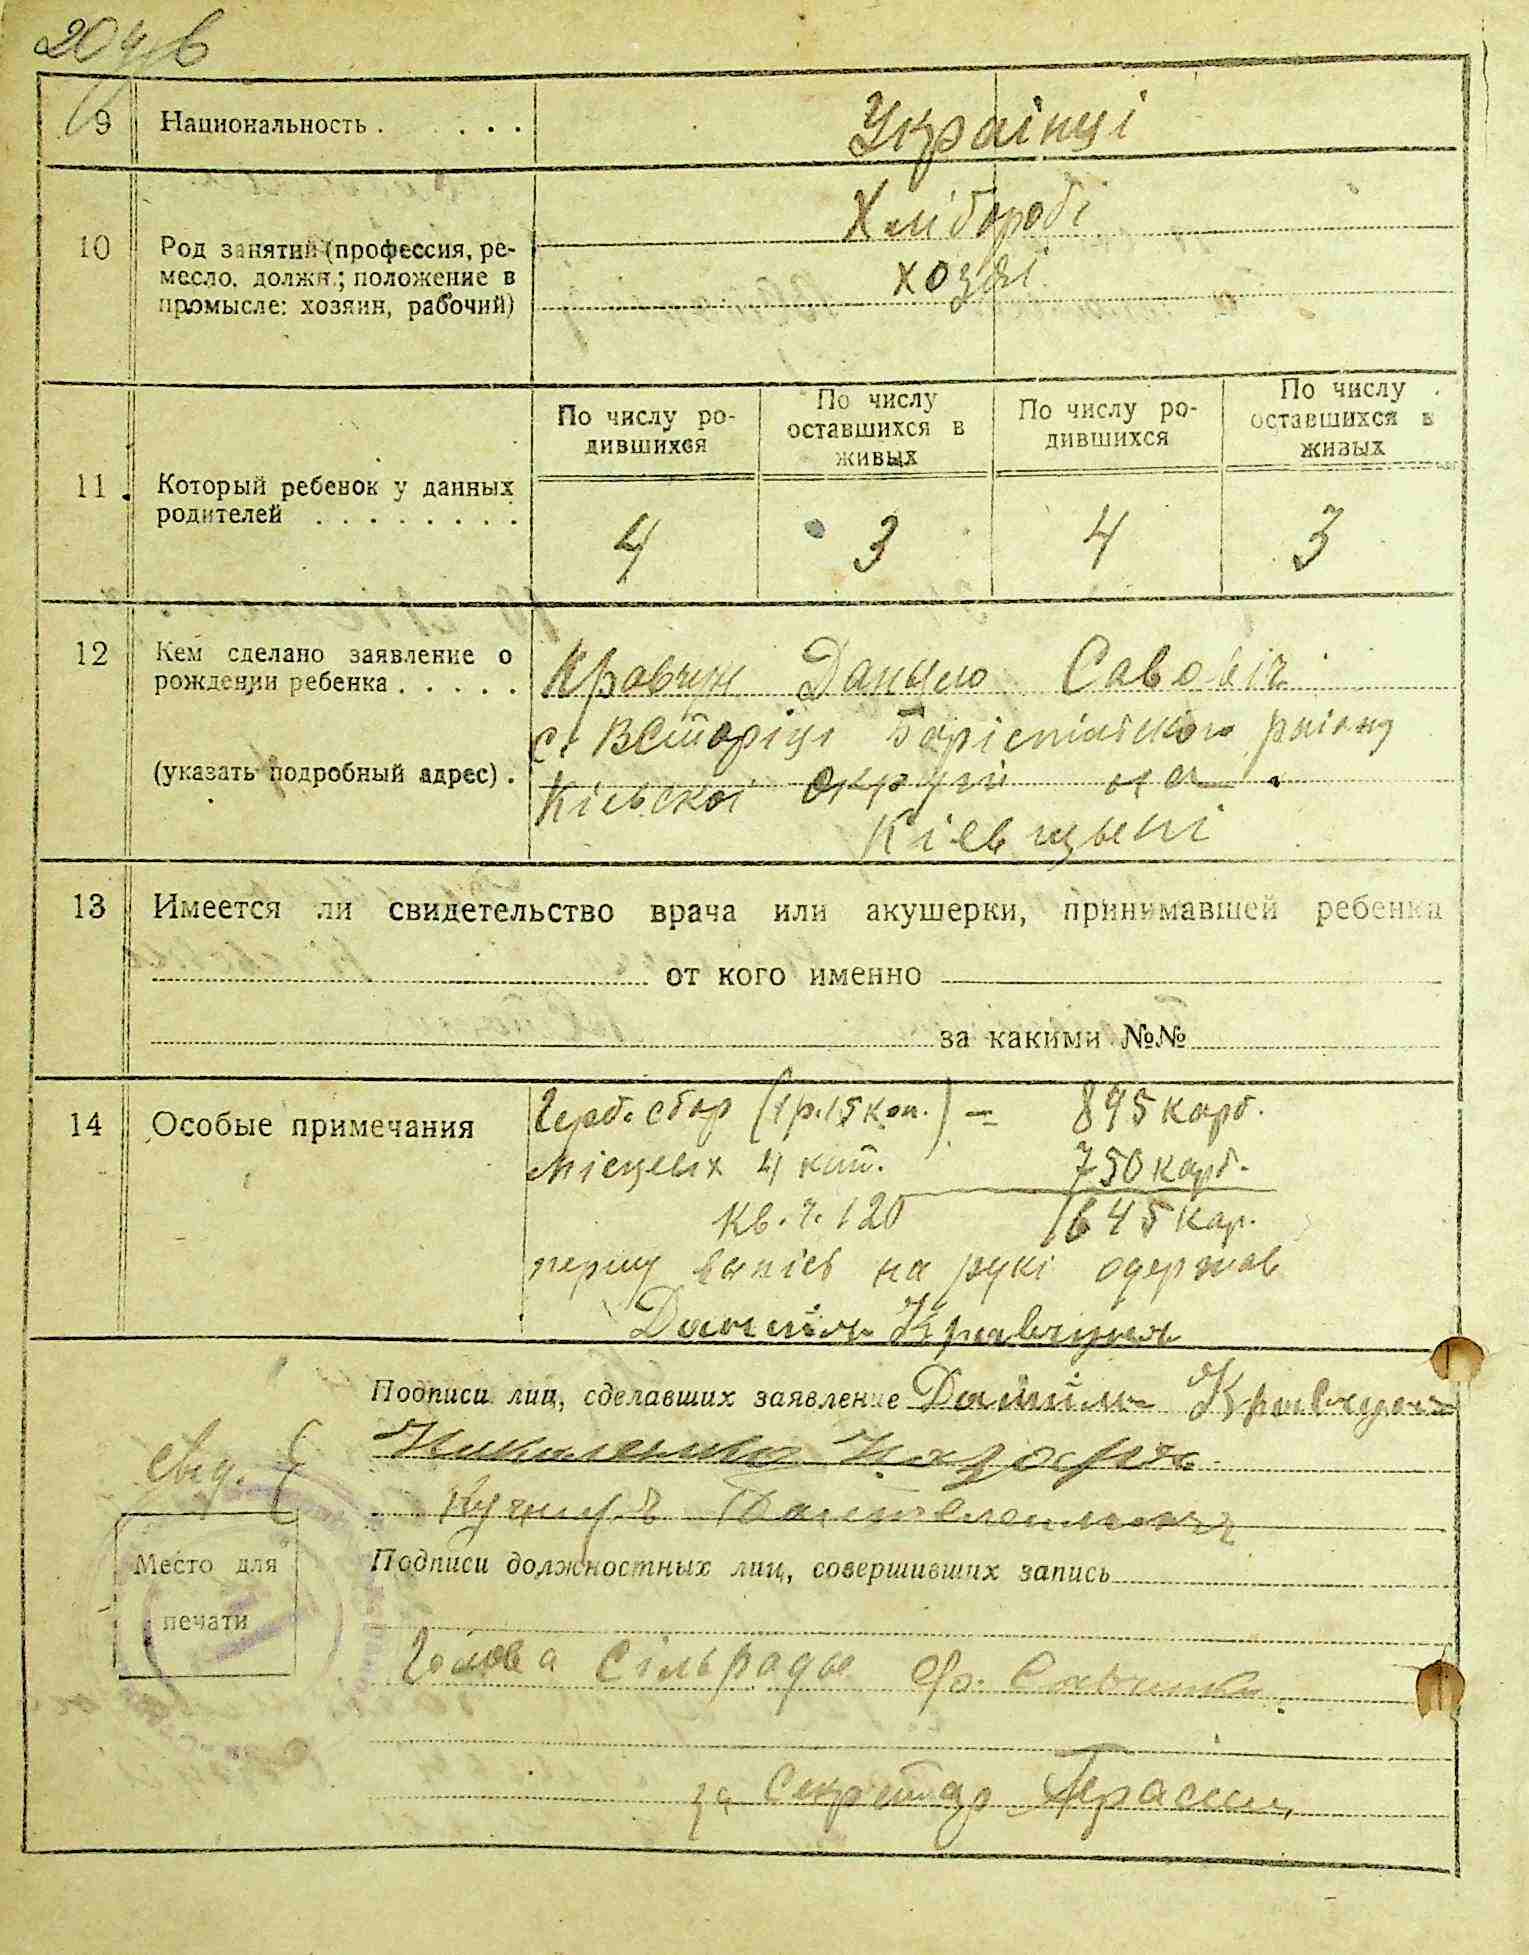 9 Национальность . . . . .
Украінці
10 Род занятий (профессия, ре-
месло, должн.; положение в
промысле: хозяин, рабочий)
Хліборобі
хозяі
11 Который ребенок у данных
родителей . . . . . . . . .
По числу ро-
дившихся
По числу
оставшихся в
живых
По числу ро-
дившихся
По числу
оставшихся в
живых
4 3 4 3
12 Кем сделано заявление о
рождении ребенка . . . . .
(указать подробный адрес) .
Кравчук Данило Савовіч
с. Вєторіці Боріспільского раіону
Кіевскоі округи на
Кіевщыні
13 Имеется ли свидетельство врача или акушерки, принимавшей ребенка
от кого именно
за какими №№
14 Особые примечания
Герб. сбор (1 р. 15 коп.) = 895 карб.
Місцевих 4 коп. 750 карб.
Кв. ч. 120 1645 кар.
першу вапісь на рукі одержав
Даніїл Кравчук
Подписи лиц, сделавших заявление Даніїл Кравчук
свід. {
Николенко
Место для
печати
Подписи должностных лиц, совершивших запись
Голова Сільради
за Секретар Герасим